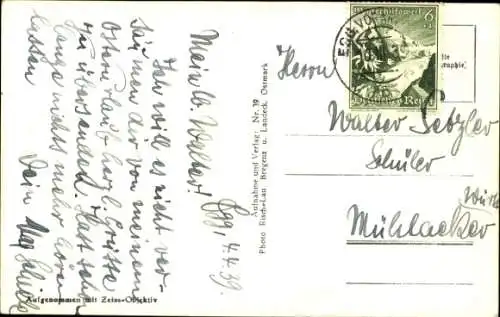 Egg, 4.4.39.
Mein lb. Walter!
Ich will es nicht ver-
säumen dir von meinem
Osterurlaub herzl. Grüsse
zu übersenden. Hast schon
lange nichts mehr hören
lassen
Dein
Aufgenommen mit Zeiss-Objektiv
Aufnahme und Verlag: Nr. 39
Photo Risch-Lau Bregenz u. Landeck, Ostmark
6
Deutsches Reich
Herrn
Walter Setzler
Schüler
Mühlacker
Württ.